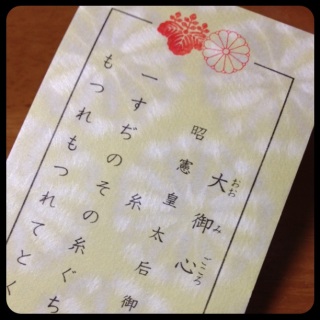 大御心
おお み ごころ
昭憲皇太后御
一すぢのその糸ぐち
もつれもつれてとく